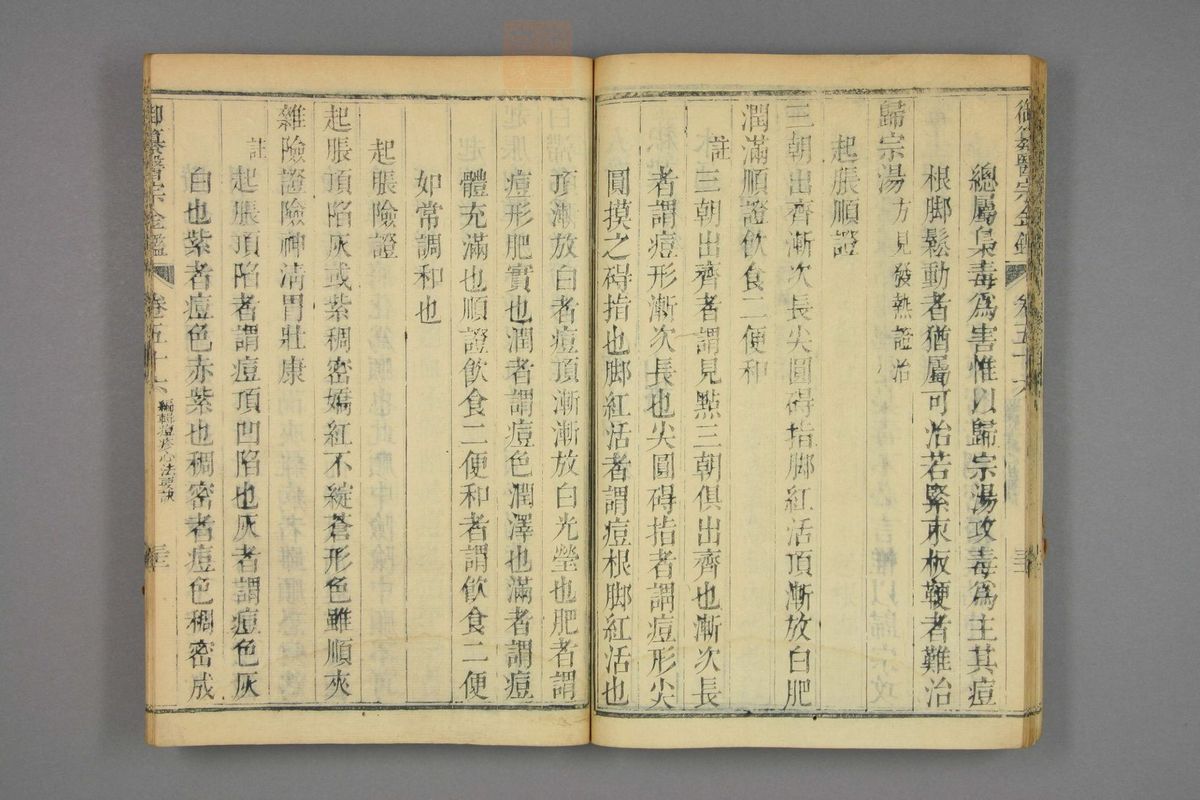 御纂醫宗金鑑 卷五十六
總屬梟毒爲害惟以歸宗湯攻毒爲主其痘
根脚鬆動者猶屬可治若緊束板鞕者難治
歸宗湯 方見發熱證治
起脹順證
三朝出齊漸次長尖圓碍指脚紅活頂漸放白肥
潤滿順證飲食二便和
註 三朝出齊者謂見點三朝俱出齊也漸次長
者謂痘形漸次長也尖圓碍指者謂痘形尖
圓摸之碍指也脚紅活者謂痘根脚紅活也
頂漸放白者痘頂漸漸放白光瑩也肥者謂
痘形肥實也潤者謂痘色潤澤也滿者謂痘
體充滿也順證飲食二便和者謂飲食二便
如常調和也
起脹險證
起脹頂陷灰或紫稠密嬌紅不綻蒼形色雖順夾
雜險證險神清胃壯康
註 起脹頂陷者謂痘頂凹陷也灰者謂痘色灰
白也紫者痘色赤紫也稠密者痘色稠密成
御纂醫宗金鑑 卷五十六 編輯痘疹心法要訣